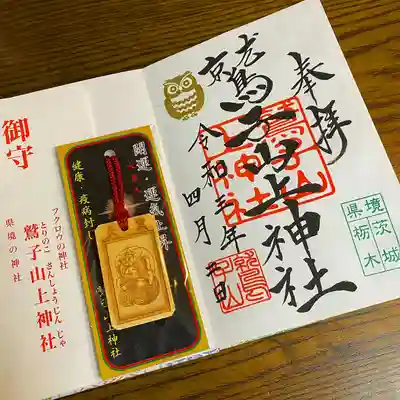 奉拝
鷲子山上神社
令和三年
四月
茨城
境
栃木県
御守
フクロウの神社
とりのこ さんしょうじんじゃ
鷲子山上神社
県境の神社
開運・運気上昇
健康・疫病封じ
山上神社